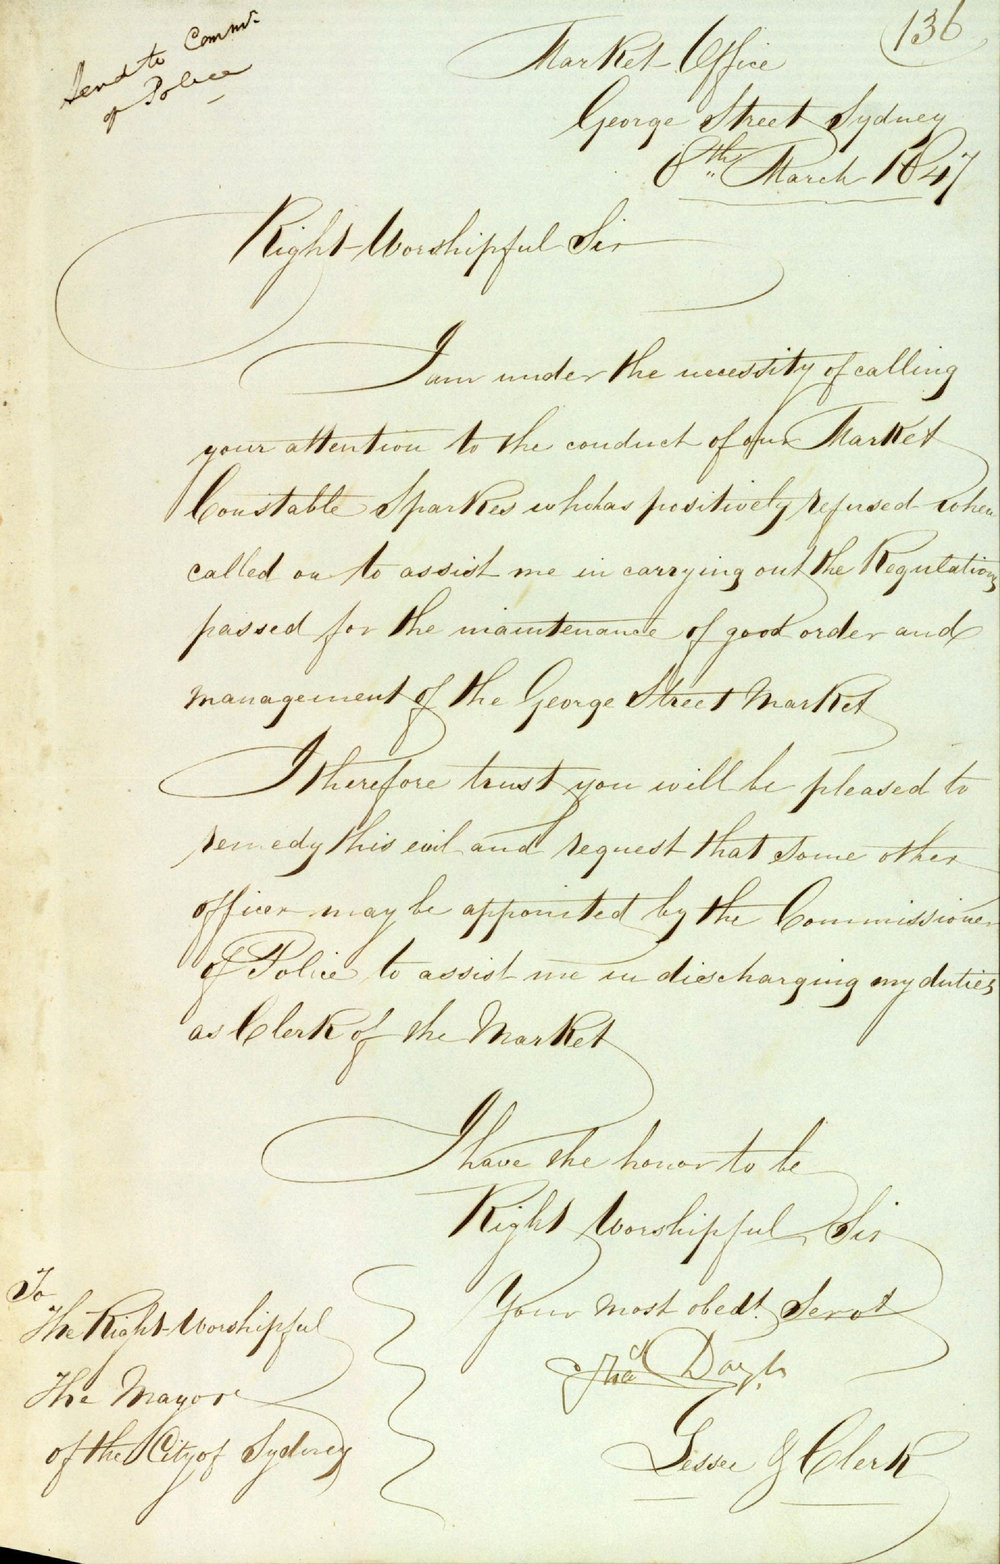 136
Send to Commr
of Police
Market Office
George Street Sydney
8th March 1847
Right Worshipful Sir
I am under the necessity of calling
your attention to the conduct of our Market
Constable Sparkes who has positively refused when
called on to assist me in carrying out the Regulations
passed for the maintenance of good order and
management of the George Street Market
I therefore trust you will be pleased to
remedy this evil and request that some other
officer may be appointed by the Commissioner
of Police to assist me in discharging my duties
as Clerk of the Market
I have the honor to be
Right Worshipful Sir
Your most obedt. Servt
Lessee & Clerk
To
The Right Worshipful
The Mayor
of the City of Sydney